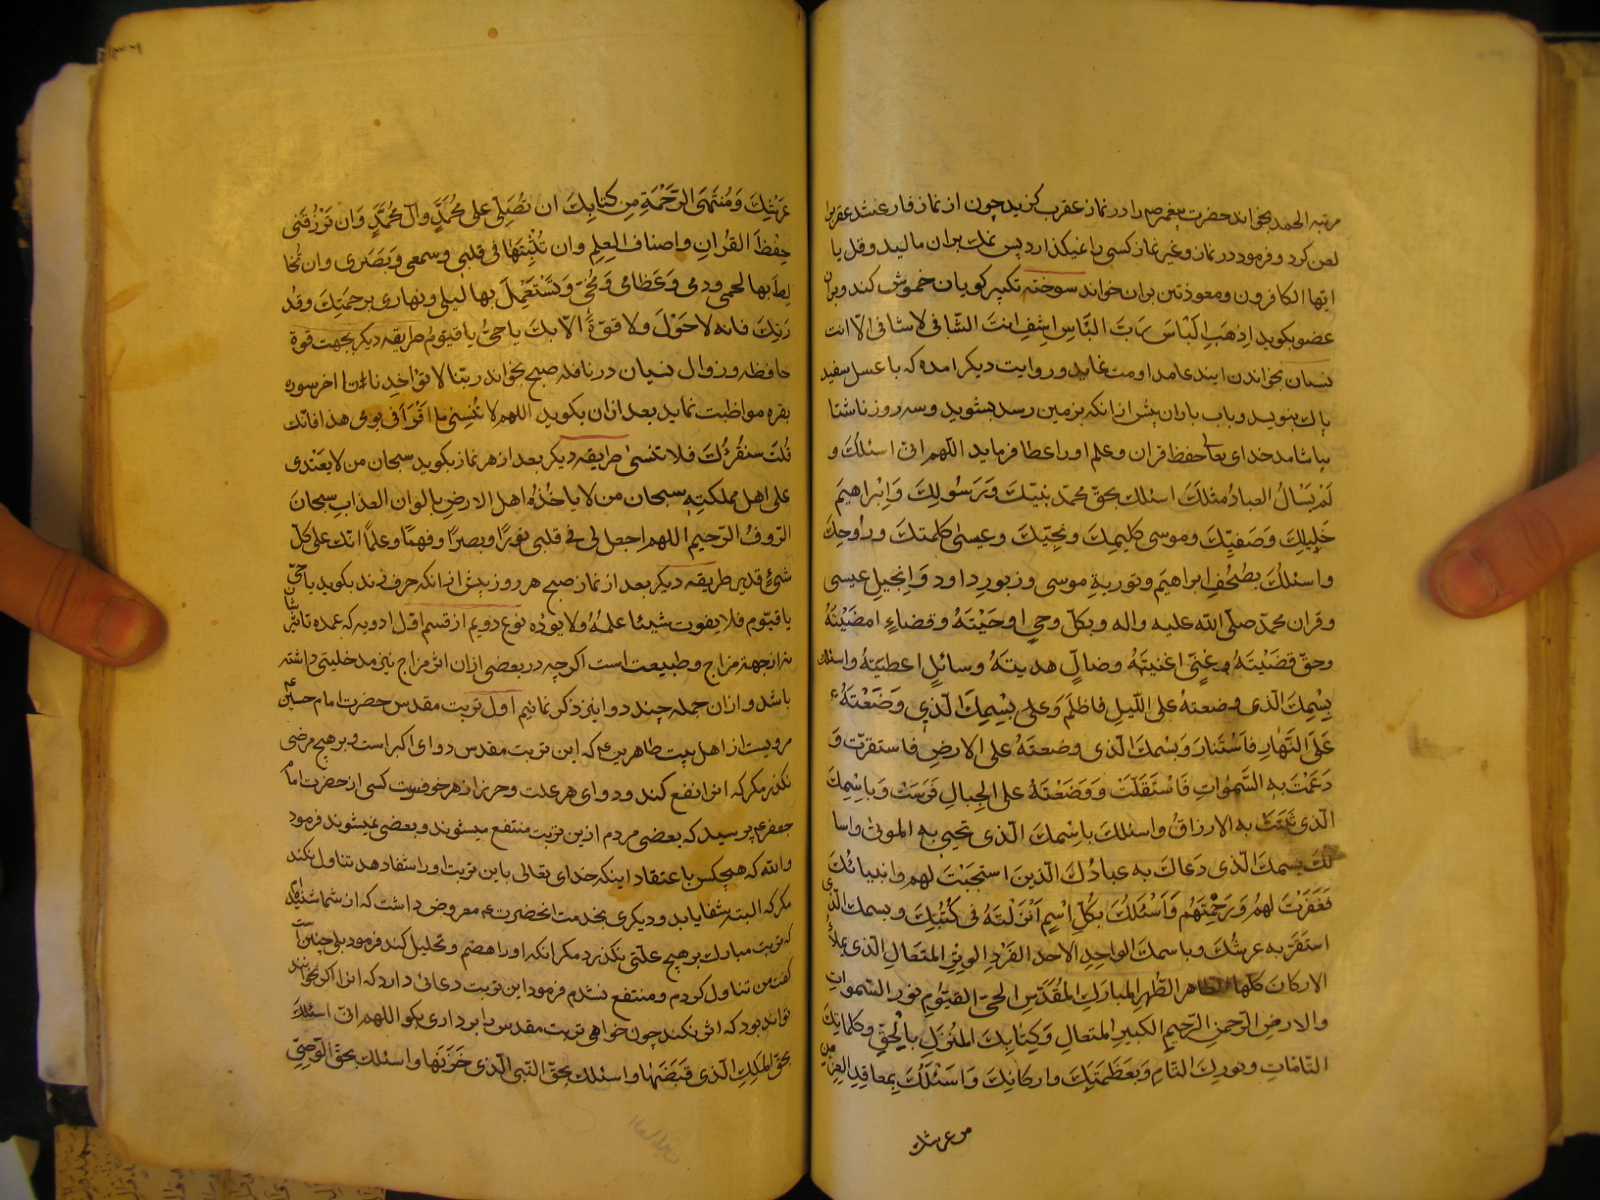 مرتبه الحمد بخواند حضرت پیغمبر صم را در نماز عقرب کزید چون از نماز فارغ شد عقرب را
لعن کرد و فرمود در نماز و غیر نماز کسی را نمیکذارد پس نمک بران مالید و قل یا
ایها الکافرون و معوذتین بران خواند سوخته تکبیر کویان خموش کند و بران
عضو بکوید اِذهَبِ الْبَاسَ رَبَّ النَّاسِ اِشفِ انتَ الشّافی لا شافی الّا انت
نسیان بخواندن ایند عا مداومت نماید و روایت دیکر امده که با عسل سفید
پاک بنویسد و باب باران پیش از انکه بزمین رسد بشوید و سه روز ناشتا
بیاشامد خدای تعا حفظ قران و علم او را عطا فرماید اللّهم انّی اسئلکَ و
لَمْ یَسْألُ العبادُ مثلَکَ اسئلک بحقّ محمّد نبیّکَ وَ رَسُولِکَ وَ اِبْراهیمَ
خَلِیلِکَ وَ صَفِیِّکَ و موسی کلیمِکَ و نَجِیِّکَ و عیسی کلمتکَ و رُوحِکَ
و اسئلکَ بصُحُفِ ابراهیمَ و توریةِ موسی و زبورِ داود وَ اِنجیلِ عیسی
و قران محمدٍ صلّی اللّه علیه و اله و بکلّ وحیٍ اوحَیْتَهُ و قضاءٍ امضَیْتَهُ
و حقّ قضَیْتَهُ و غنیّ اغنیتَهُ و ضالٍّ هدیتهُ و سائلٍ اعطیتَهُ و اسئلک
بِسْمِکَ الّذی وضعتهُ علی اللّیلِ فاظلَم وَ علی بِسْمِکَ الّذی وَضَعْتَهُ
عَلَی النَّهارِ فَاسْتَنارَ وَ بِسْمکَ الّذی وضعتَهُ علی الارضِ فاستقرّت وَ
دَعَمْتَ به السَّمواتِ فَاسْتَقَلَّتْ وَ وَضَعْتَهُ علی الجبالِ فَرَسَتْ وَ بِاسْمِکَ
الّذی بَثَثْتَ به الارزاقُ و اسئلکَ باسْمکَ الّذی تحیی به الموتی و اسا
لکَ بِسمکَ الّذی دَعاکَ به عبادُکَ الّذین استجبْتَ لهم و انبیائکَ
فَغَفَرْتَ لهم وَ رَحِمْتَهُم وَ اَسْئَلُکَ بکلّ اسْمٍ اَنْزَلْتَهُ فی کُتُبِکَ و بسمک الّذی
استقَرَّ به عرشُکَ و باسمکَ الواحِدِ الاحد الفَرْدِ الوِترِ المتَعالِ الّذی یملأُ
الارکانَ کلّها الطاهر الطُّهرِ المبارَکِ المُقَدَّسِ الحیّ القیّومِ نور السّمواتِ
و الارضِ الرّحمنِ الرّحیمِ الکبیرِ المتعالِ وَ کِتابِکَ المُنزَلِ بِالْحَقِّ و کلماتِکَ
التّامّاتِ و نورِکَ التّامِ وَ بِعَظَمَتِکَ و ارکانِکَ وَ اَسْئَلُکَ بِمعاقِدِ العِزِّ من
من عرشک
عَرْشِکَ وَ مُنتَهَی الرَّحْمَةِ مِن کتابِکَ ان تُصَلِّیَ علی محُمَّدٍ و آلِ محُمَّدٍ وَ ان تَرْزُقَنی
حِفْظَ القُرانِ و اصنافِ العِلِم و ان تُثْبِتَهَا فی قلبی و سمعی و بَصَری و ان تُخا
لِطَ بها لحمی و دمی وَ عَظامی وَ مُخّی وَ تَسْتَعْمِلَ بها لیلی و نهاری برحمتِکَ و قد
رتِکَ فانه لا حَوْلَ و لا قوّةَ الّا بکَ یا حیُّ یا قیّومُ طریقه دیکر بجهت قوة
حافظه و زوال نسیان در نافله صبح بخواند ربّنا لا تؤاخذنا تا اخر سوره
بقره مواظبت نماید بعد ازان بکوید اللهم لا تُنْسِنی ما اقرَأُ فی یومی هذا فانّک
قُلتَ سنقرئک فلا تنسی طریقه دیکر بعد از هر نماز بکوید سبحان من لا یعتدی
علی اهل مملکتِهِ سبحان من لا یاخُذُ اهل الارضِ بالوانِ العذابِ سبحان
الرّوفُ الرّحیم اللهم اجعل لی فی قلبی نورًا و بصرًا و فهمًا و علمًا انّکَ علی کلّ
شئٍ قدیر طریقه دیکر بعد از نماز صبح هر روز پیش از انکه حرف زند بکوید یا حیّ
یا قیّوم فلا یفوت شیئا علمُهُ و لا یؤدهُ نوع دویم از قسم اول ادویه که عمده تاثیرشان
نه از جهة مزاج و طبیعت است اکرچه در بعضی ازان اثر مزاج نیز مدخلیتی داشته
باشد و ازان جمله چند دوا نیز ذکر نمائیم اول تربت مقدس حضرت امام حسین ع
مرویست از اهل بیت طاهرین ع که این تربت مقدس دوای اکبر است و بر هیچ مرضی
نکذرد مکر که انرا نفع کند و دوای هر علت و حرز از هر خوفست کسی از حضرت امام
جعفر ع پرسید که بعضی مردم ازین تربت منتفع میشوند و بعضی نمیشوند فرمود
و الله که هیچکس با عتقاد اینکه خدای تعالی باین تربت او را شفا دهد تناول نکند
مکر که البته شفا یابد و دیکری بخدمت انحضرت ع معروض داشت که از شما شنیدم
که تربت مبارک بر هیچ علّتی نکذرد مکر انکه او را هضم و تحلیل کند فرمود بلی چنین است
کفت من تناول کردم و منتفع نشدم فرمود این تربت دعائی دارد که انرا اکر نخوانند
تواند بود که اثر نکند چون خواهی تربت مقدس را برداری بکو اللهم انّی اسئلکَ
بحقّ المَلَکِ الّذی قَبَضَها و اسئلک بحقّ النّبی الّذی خَزَنَها و اسئلک بحقّ الوصیّ